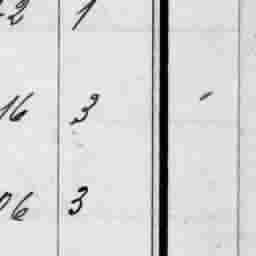 2 1
16 3
06 3